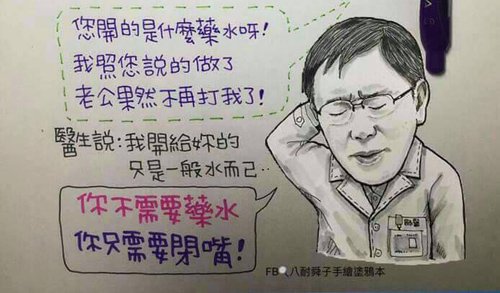 您開的是什麼藥水呀!
我照您說的做了
老公果然不再打我了!
醫生說:我開給妳的
只是一般水而已..
你不需要藥水
你只需要閉嘴!
FB 八耐舜子手繪塗鴉本